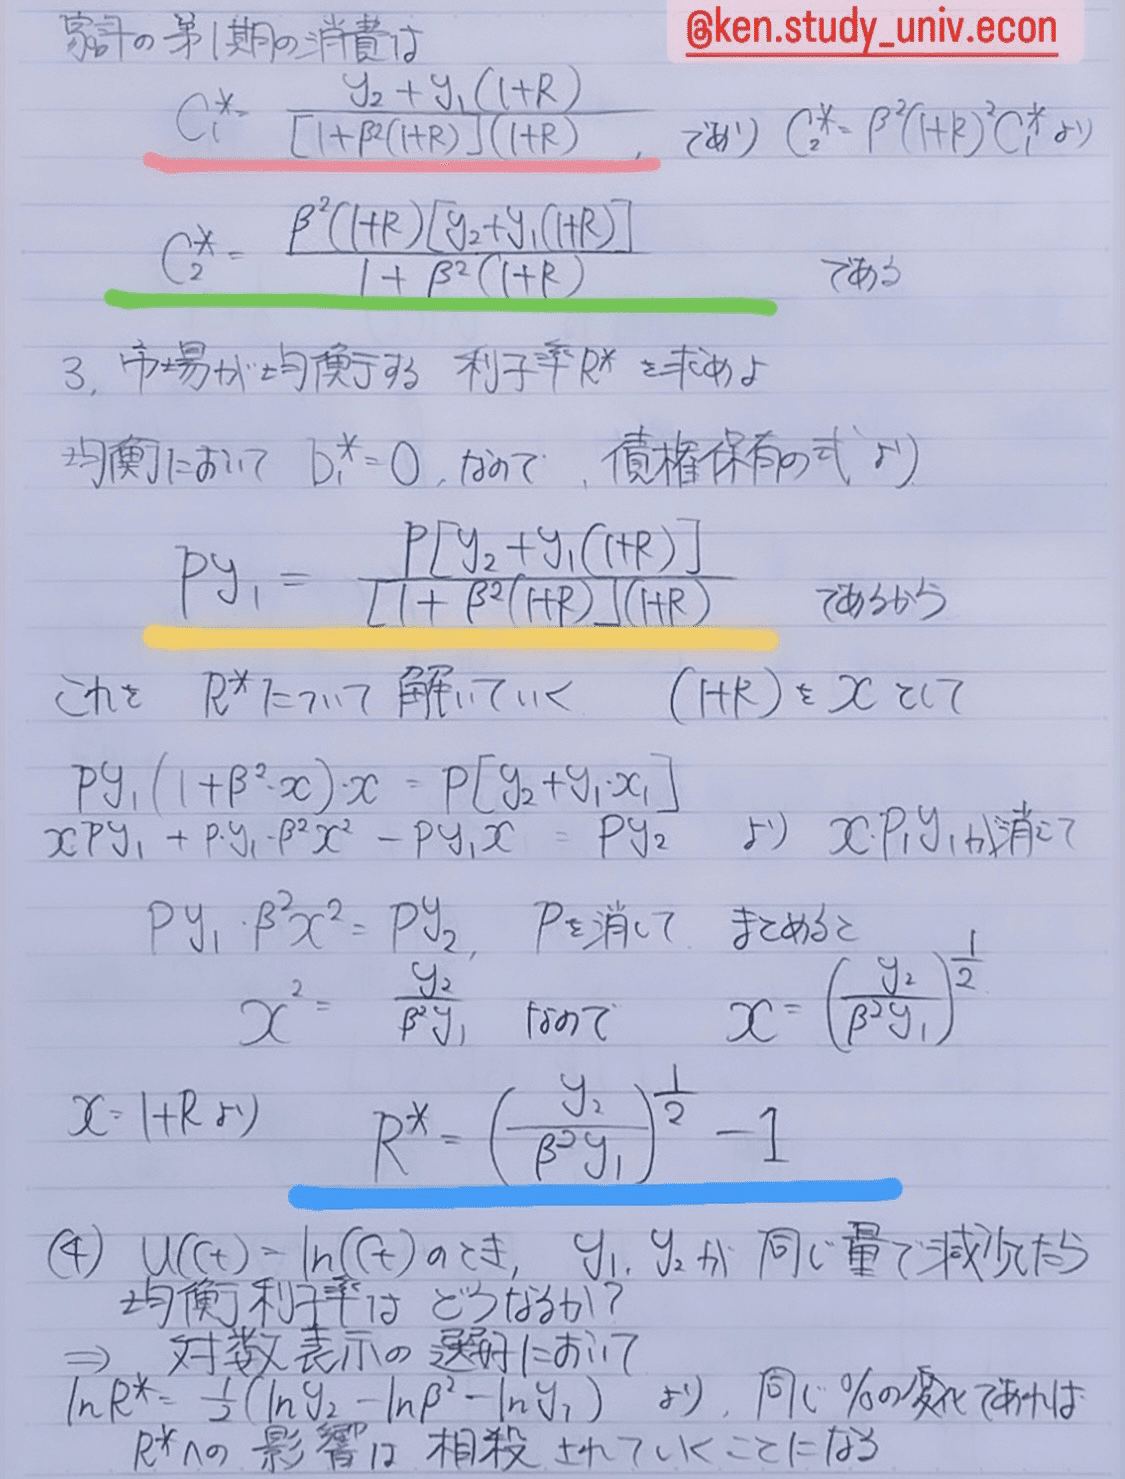 @ken.study_univ.econ
家計の第1期の消費は
C₁* = y₂+y₁(1+R) / [1+β²(1+R)](1+R) , であり C₂* = β²(1+R)²C₁* より
C₂* = β²(1+R)[y₂+y₁(1+R)] / 1+β²(1+R) である
3, 市場が均衡する 利子率R* を求めよ
均衡において b₁*=0, なので, 債権保有の式より
Py₁ = P[y₂+y₁(1+R)] / [1+β²(1+R)](1+R) であるから
これを R*について 解いていく (1+R)を x として
Py₁(1+β²·x)·x = P[y₂+y₁·x₁]
xPy₁ + P·y₁·β²x² - Py₁x = Py₂ より x·P₁y₁が消えて
Py₁·β²x² = Py₂, Pを消して まとめると
x² = y₂ / β²y₁ なので x = (y₂ / β²y₁)^½
x = 1+R より R* = (y₂ / β²y₁)^½ - 1
(4) U(Ct) = ln(Ct)のとき, y₁, y₂が 同じ量で減少したら
均衡利子率は どうなるか?
⇒ 対数表示の選好において
lnR* = ½(lny₂ - lnβ² - lny₁) より, 同じ%の変化であれば
R*への影響は相殺されていくことになる